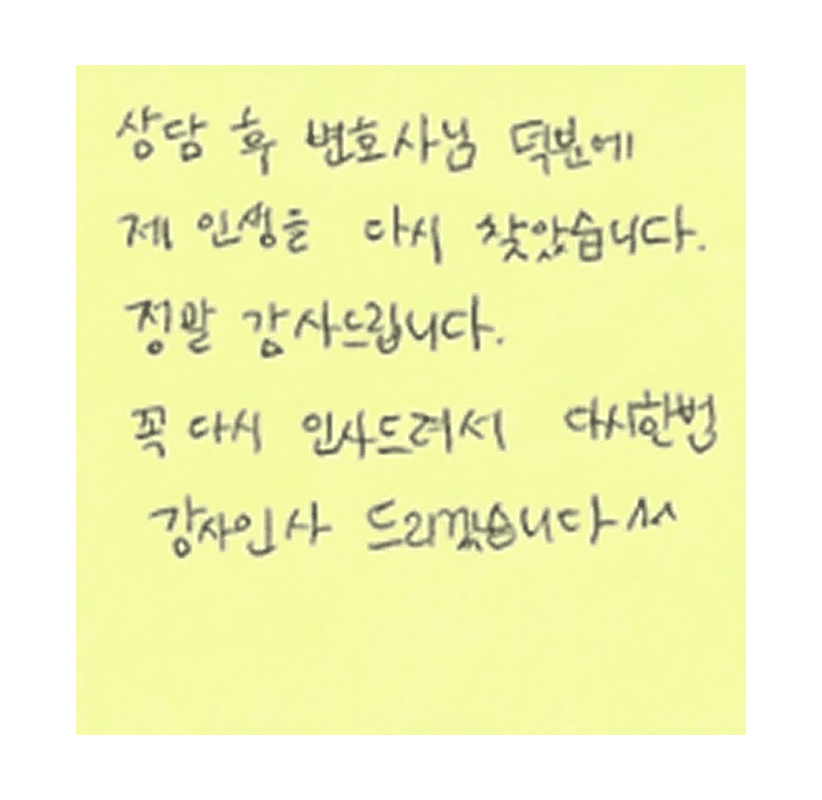 상담 후 변호사님 덕분에
제 인생을 다시 찾았습니다.
정말 감사드립니다.
꼭 다시 인사드려서 다시한번
감사인사 드리겠습니다^^